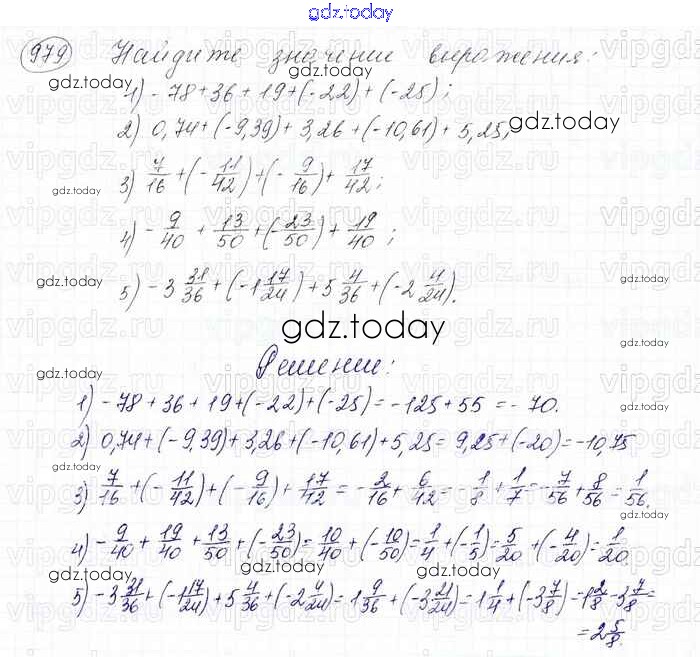 gdz.today
979 Найдите значение выражения:
gdz.today
1) - 78 + 36 + 19 + (- 22) + (- 25);
2) 0,74 + (- 9,39) + 3,26 + (- 10,61) + 5,25; gdz.today
3) 7/16 + (- 11/42) + (- 9/16) + 17/42;
gdz.today
4) - 9/40 + 13/50 + (- 23/50) + 19/40;
5) - 3 31/36 + (- 1 17/24) + 5 4/36 + (- 2 4/24).
gdz.today gdz.today
gdz.today
Решение:
gdz.today gdz.today
1) - 78 + 36 + 19 + (- 22) + (- 25) = - 125 + 55 = - 70.
2) 0,74 + (- 9,39) + 3,26 + (- 10,61) + 5,25 = 9,25 + (- 20) = - 10,75
gdz.today gdz.today
3) 7/16 + (- 11/42) + (- 9/16) + 17/42 = - 2/16 + 6/42 = - 1/8 + 1/7 = - 7/56 + 8/56 = 1/56.
gdz.today
4) - 9/40 + 19/40 + 13/50 + (- 23/50) = 10/40 + (- 10/50) = 1/4 + (- 1/5) = 5/20 + (- 4/20) = 1/20.
gdz.today gdz.today gdz.today
5) - 3 31/36 + (- 1 17/24) + 5 4/36 + (- 2 4/24) = 1 9/36 + (- 3 21/24) = 1 1/4 + (- 3 7/8) = 1 2/8 - 3 7/8 =
= 2 5/8.